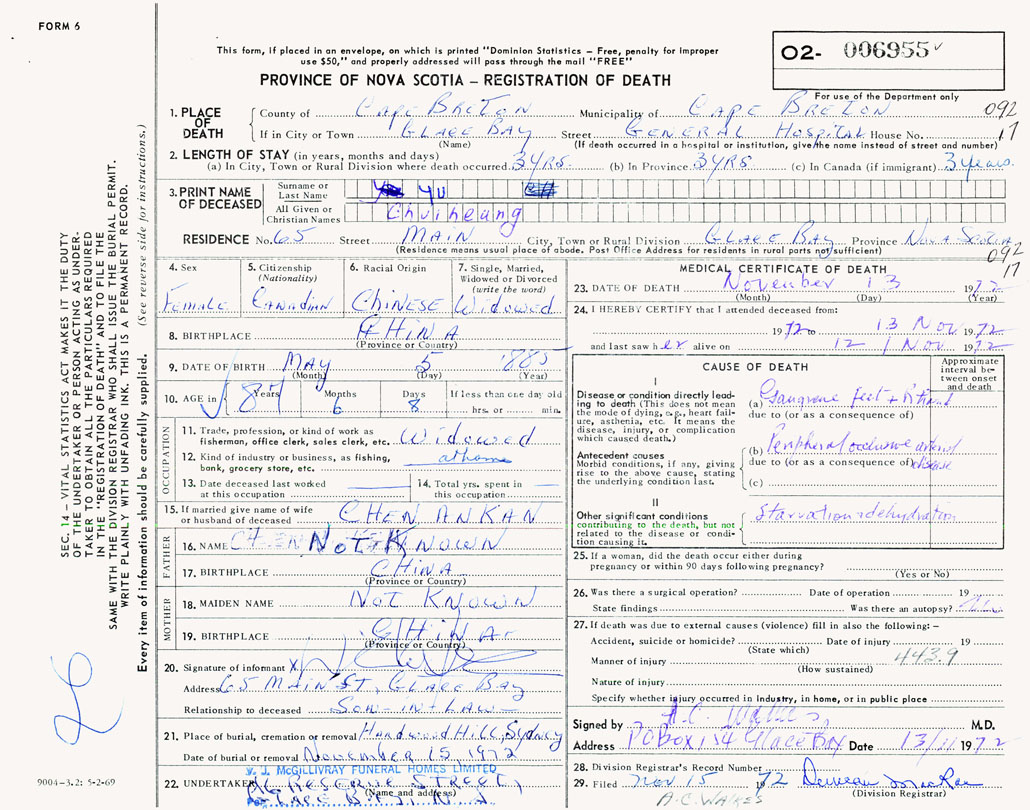 FORM 6
This form, if placed in an envelope, on which is printed "Dominion Statistics – Free, penalty for improper
use $50," and properly addressed will pass through the mail "FREE"
O2- 006955
PROVINCE OF NOVA SCOTIA – REGISTRATION OF DEATH
For use of the Department only
092
17
1. PLACE OF DEATH
County of Cape Breton Municipality of Cape Breton
If in City or Town Glace Bay Street General Hospital House No.
(Name) (If death occurred in a hospital or institution, give the name instead of street and number)
2. LENGTH OF STAY (in years, months and days)
(a) In City, Town or Rural Division where death occurred 3 yrs. (b) In Province 3 yrs (c) In Canada (if immigrant) 3 years
3. PRINT NAME OF DECEASED
Surname or Last Name Yu
All Given or Christian Names Chuiheung
RESIDENCE No. 65 Street Main City, Town or Rural Division Glace Bay Province Nova Scotia
(Residence means usual place of abode. Post Office Address for residents in rural parts not sufficient)
092
17
4. Sex Female
5. Citizenship (Nationality) Canadian
6. Racial Origin Chinese
7. Single, Married, Widowed or Divorced (write the word) Widowed
8. BIRTHPLACE CHINA
(Province or Country)
9. DATE OF BIRTH May 5 1885
(Month) (Day) (Year)
10. AGE in 87 Years 6 Months 8 Days If less than one day old
hrs. or min.
OCCUPATION
11. Trade, profession, or kind of work as
fisherman, office clerk, sales clerk, etc. Widowed
12. Kind of industry or business, as fishing,
bank, grocery store, etc. at home
13. Date deceased last worked
at this occupation
14. Total yrs. spent in
this occupation
15. If married give name of wife
or husband of deceased CHEN ANKAN
FATHER
16. NAME Not Known
17. BIRTHPLACE CHINA
(Province or Country)
MOTHER
18. MAIDEN NAME Not Known
19. BIRTHPLACE CHINA
(Province or Country)
20. Signature of informant X
Address 65 Main St, Glace Bay
Relationship to deceased Son-in-Law
21. Place of burial, cremation or removal Hardwood Hill, Sydney
Date of burial or removal November 15, 1972
V. J. McGILLIVRAY FUNERAL HOMES LIMITED
22. UNDERTAKER STREET,
(Name and address)
MEDICAL CERTIFICATE OF DEATH
23. DATE OF DEATH November 13 1972
(Month) (Day) (Year)
24. I HEREBY CERTIFY that I attended deceased from:
1972 to 13 Nov 1972
and last saw her alive on 12 Nov 1972
CAUSE OF DEATH
Approximate interval between onset and death
I
Disease or condition directly leading to death (This does not mean
the mode of dying, e.g., heart failure, asthenia, etc. It means the
disease, injury, or complication
which caused death.)
(a) Gangrene feet +
due to (or as a consequence of)
Antecedent causes
Morbid conditions, if any, giving
rise to the above cause, stating
the underlying condition last.
(b) Peripheral occlusive arterial
due to (or as a consequence of) disease
(c)
II
Other significant conditions
contributing to the death, but not
related to the disease or condition causing it.
Starvation + dehydration
25. If a woman, did the death occur either during
pregnancy or within 90 days following pregnancy?
(Yes or No)
26. Was there a surgical operation? Date of operation 19
State findings Was there an autopsy?
27. If death was due to external causes (violence) fill in also the following: –
Accident, suicide or homicide? Date of injury 19
(State which)
443.9
Manner of injury
(How sustained)
Nature of injury
Specify whether injury occurred in industry, in home, or in public place
Signed by A.C. Walkes M.D.
Address PO Box 154 Glace Bay Date 13/11 1972
28. Division Registrar's Record Number
29. Filed Nov 15 1972
(Division Registrar)
A.C. WALKES
SEC. 14 – VITAL STATISTICS ACT MAKES IT THE DUTY
OF THE UNDERTAKER OR PERSON ACTING AS UNDER-
TAKER TO OBTAIN ALL THE PARTICULARS REQUIRED
IN THE "REGISTRATION OF DEATH" AND TO FILE THE
SAME WITH THE DIVISION REGISTRAR WHO SHALL ISSUE THE BURIAL PERMIT.
WRITE PLAINLY WITH UNFADING INK. THIS IS A PERMANENT RECORD.
Every item of information should be carefully supplied. (See reverse side for instructions.)
26
9004-3.2: 5-2-69